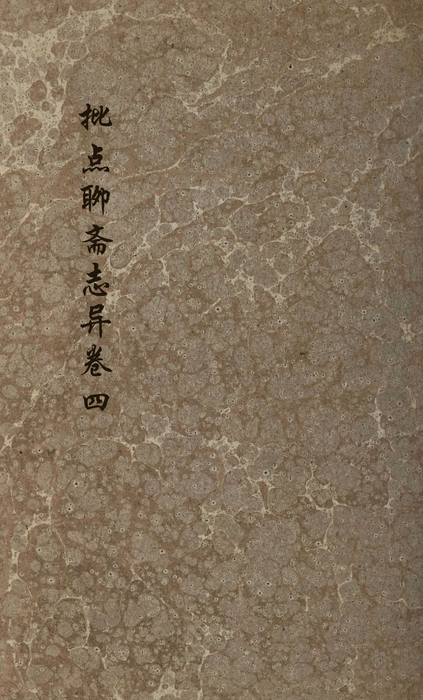 批点聊斋志异卷四